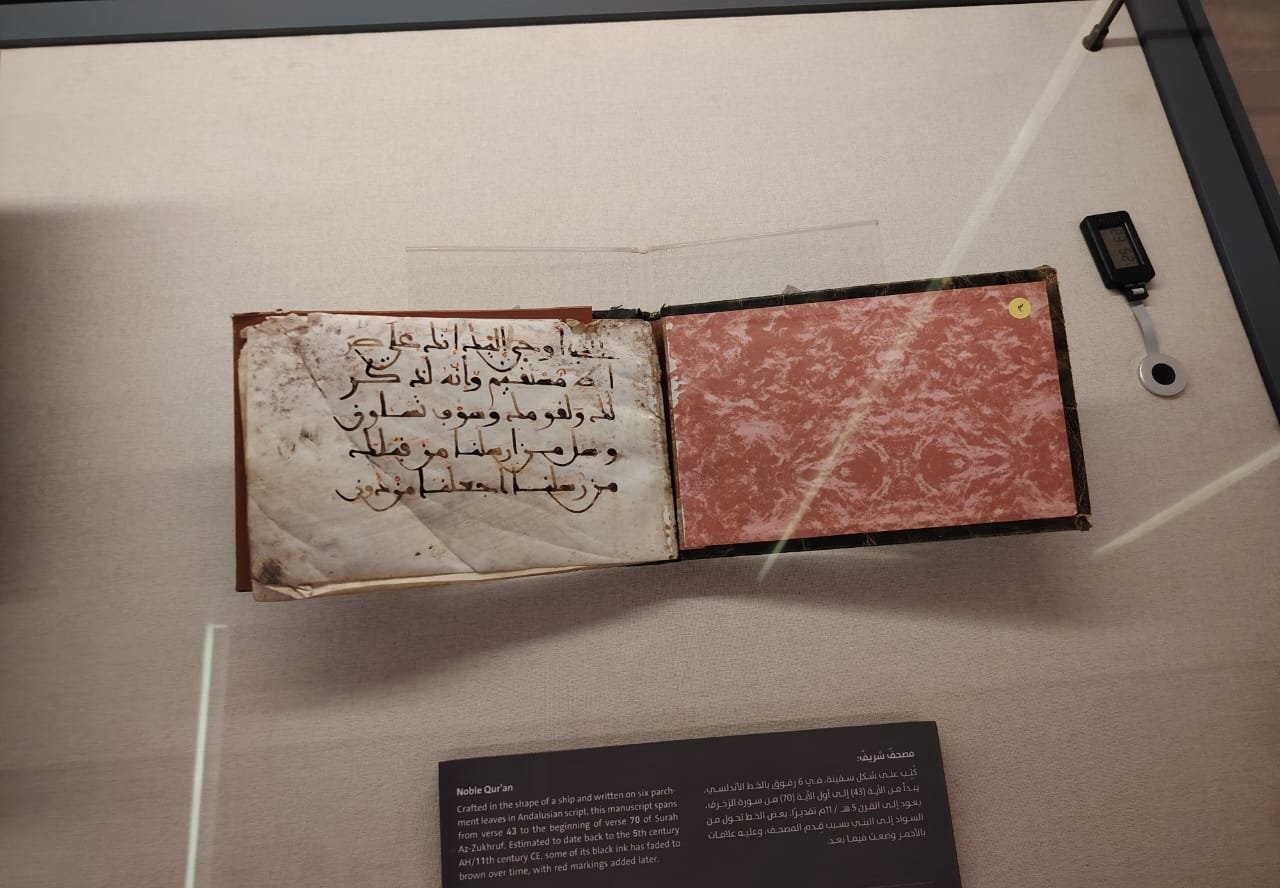 بالذي اوحي اليك انك على صر
اط مستقيم وانه لذكر
لك ولقومك وسوف تسلون
وسل من ارسلنا من قبلك
من رسلنا اجعلنا من دون
Noble Qur'an
Crafted in the shape of a ship and written on six parch-
ment leaves in Andalusian script, this manuscript spans
from verse 43 to the beginning of verse 70 of Surah
Az-Zukhruf. Estimated to date back to the 5th century
AH/11th century CE, some of its black ink has faded to
brown over time, with red markings added later.
مصحفٌ شريفٌ:
كُتب على شكل سفينة، في 6 رقوق بالخط الأندلسي،
يبدأ من الآية (43) إلى أول الآية (70) من سورة الزخرف،
يعود إلى القرن 5 هـ / 11م تقديرًا، بعض الخط تحول من
السواد إلى البني بسبب قدم المصحف، وعليه علامات
بالأحمر وضعت فيما بعد.